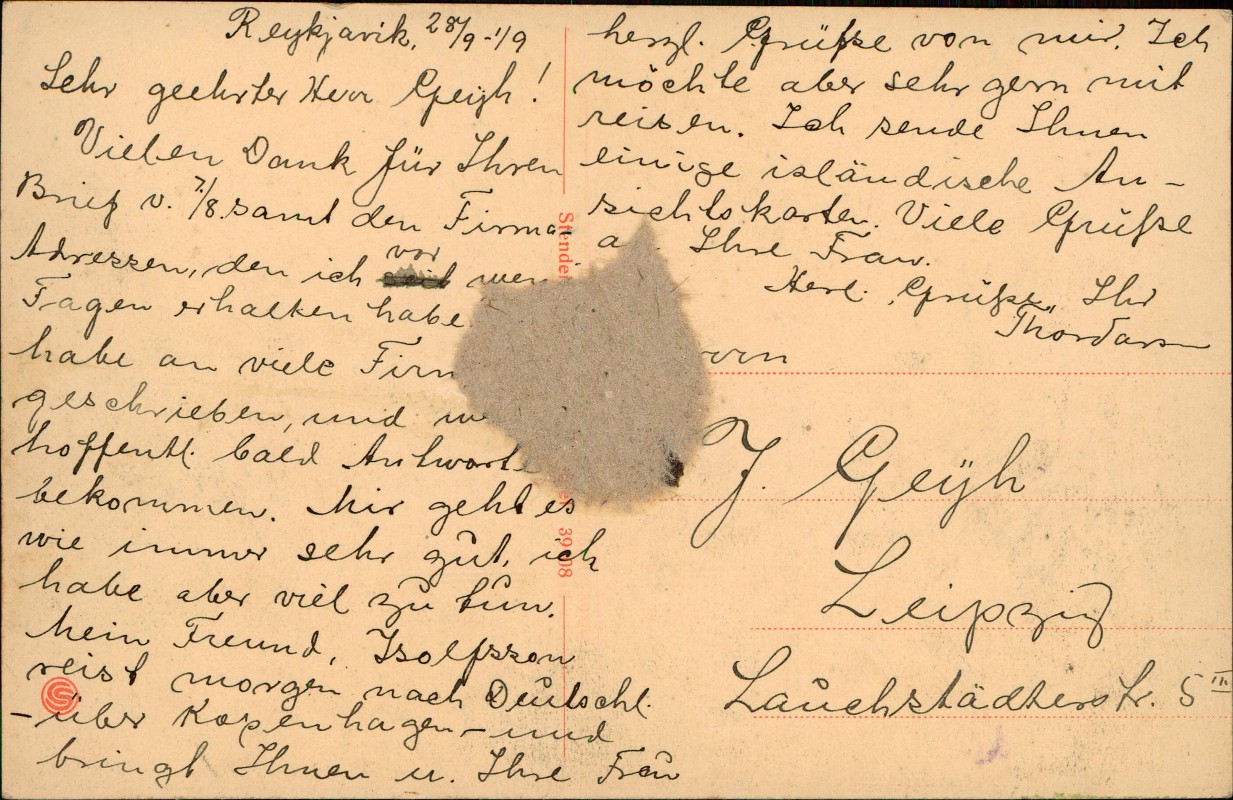 Reykjavik, 28/9-19
Sehr geehrter Herr Geyh!
Vielen Dank für Ihren
Brief v. 7./8. samt den Firma
Adressen, den ich vor
Tagen erhalten habe.
habe an viele Firm
geschrieben, und
hoffentl. bald Antwort
bekommen. Mir geht es
wie immer sehr gut, ich
habe aber viel zu tun.
Mein Freund, Isolfsson
reist morgen nach Deutschl.
- über Kopenhagen - und
bringt Ihnen u. Ihre Frau
herzl. Grüsse von mir. Ich
möchte aber sehr gern mit
reisen. Ich sende Ihnen
einige isländische An-
sichtskarten. Viele Grüsse
a Ihre Frau.
Herzl. Grüsse, Ihr
Thordarson
Stender
39808
J. Geyh
Leipzig
Lauchstädterstr. 5 III